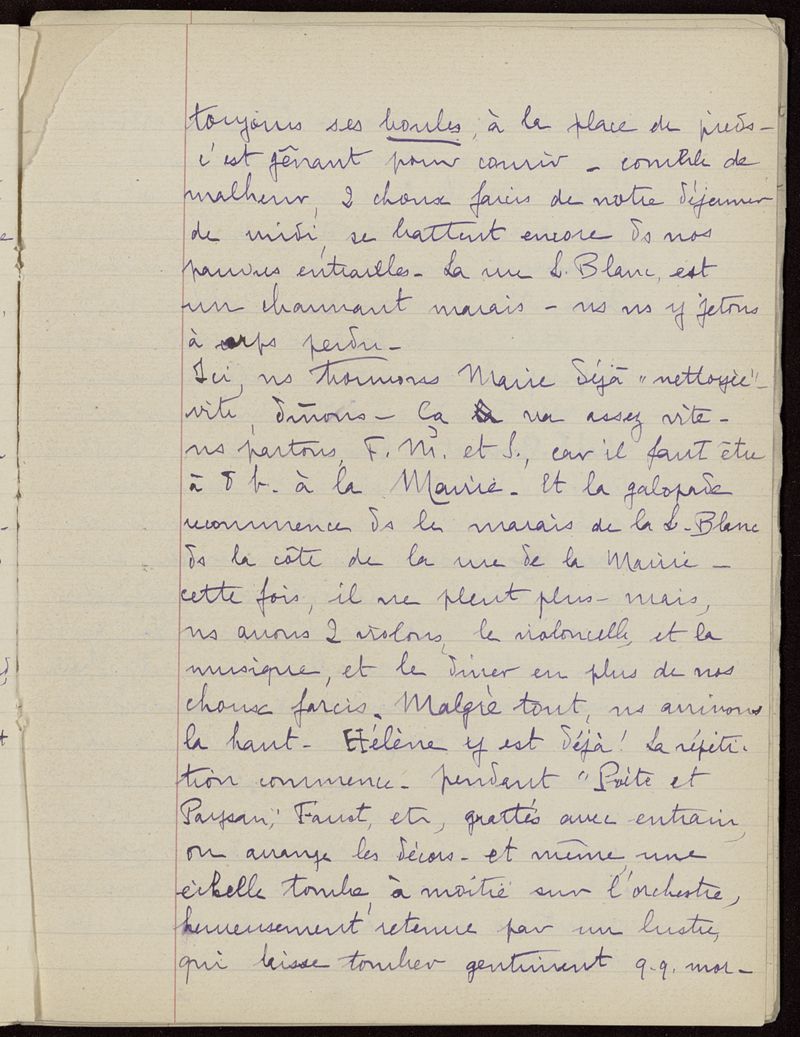 toujours ses boules, à la place de pieds -
c'est gênant pour courir - comble de
malheur, 2 choux farcis de notre déjeuner
de midi, se battent encore ds nos
pauvres entrailles - La rue L. Blanc, est
un charmant marais - ns ns y jetons
à corps perdu -
Ici, ns trouvons Marie déjà "nettoyée" -
vite, dînons - Ça va assez vite -
ns partons, F. M. et S., car il faut être
à 8 h. à la Mairie - Et la galopade
recommence ds le marais de la L. Blanc
ds la côte de la rue de la Mairie -
cette fois, il ne pleut plus - mais,
ns avons 2 violons, le violoncelle, et la
musique, et le dîner en plus de nos
choux farcis. Malgré tout, ns arrivons
là haut - Hélène y est déjà ! La répéti-
tion commence - pendant "Poète et
Paysan", Faust, etc, grattés avec entrain,
on arrange les décors - et même, une
échelle tombe, à moitié sur l'orchestre,
heureusement retenue par un lustre,
qui laisse tomber gentiment q.q. mor-